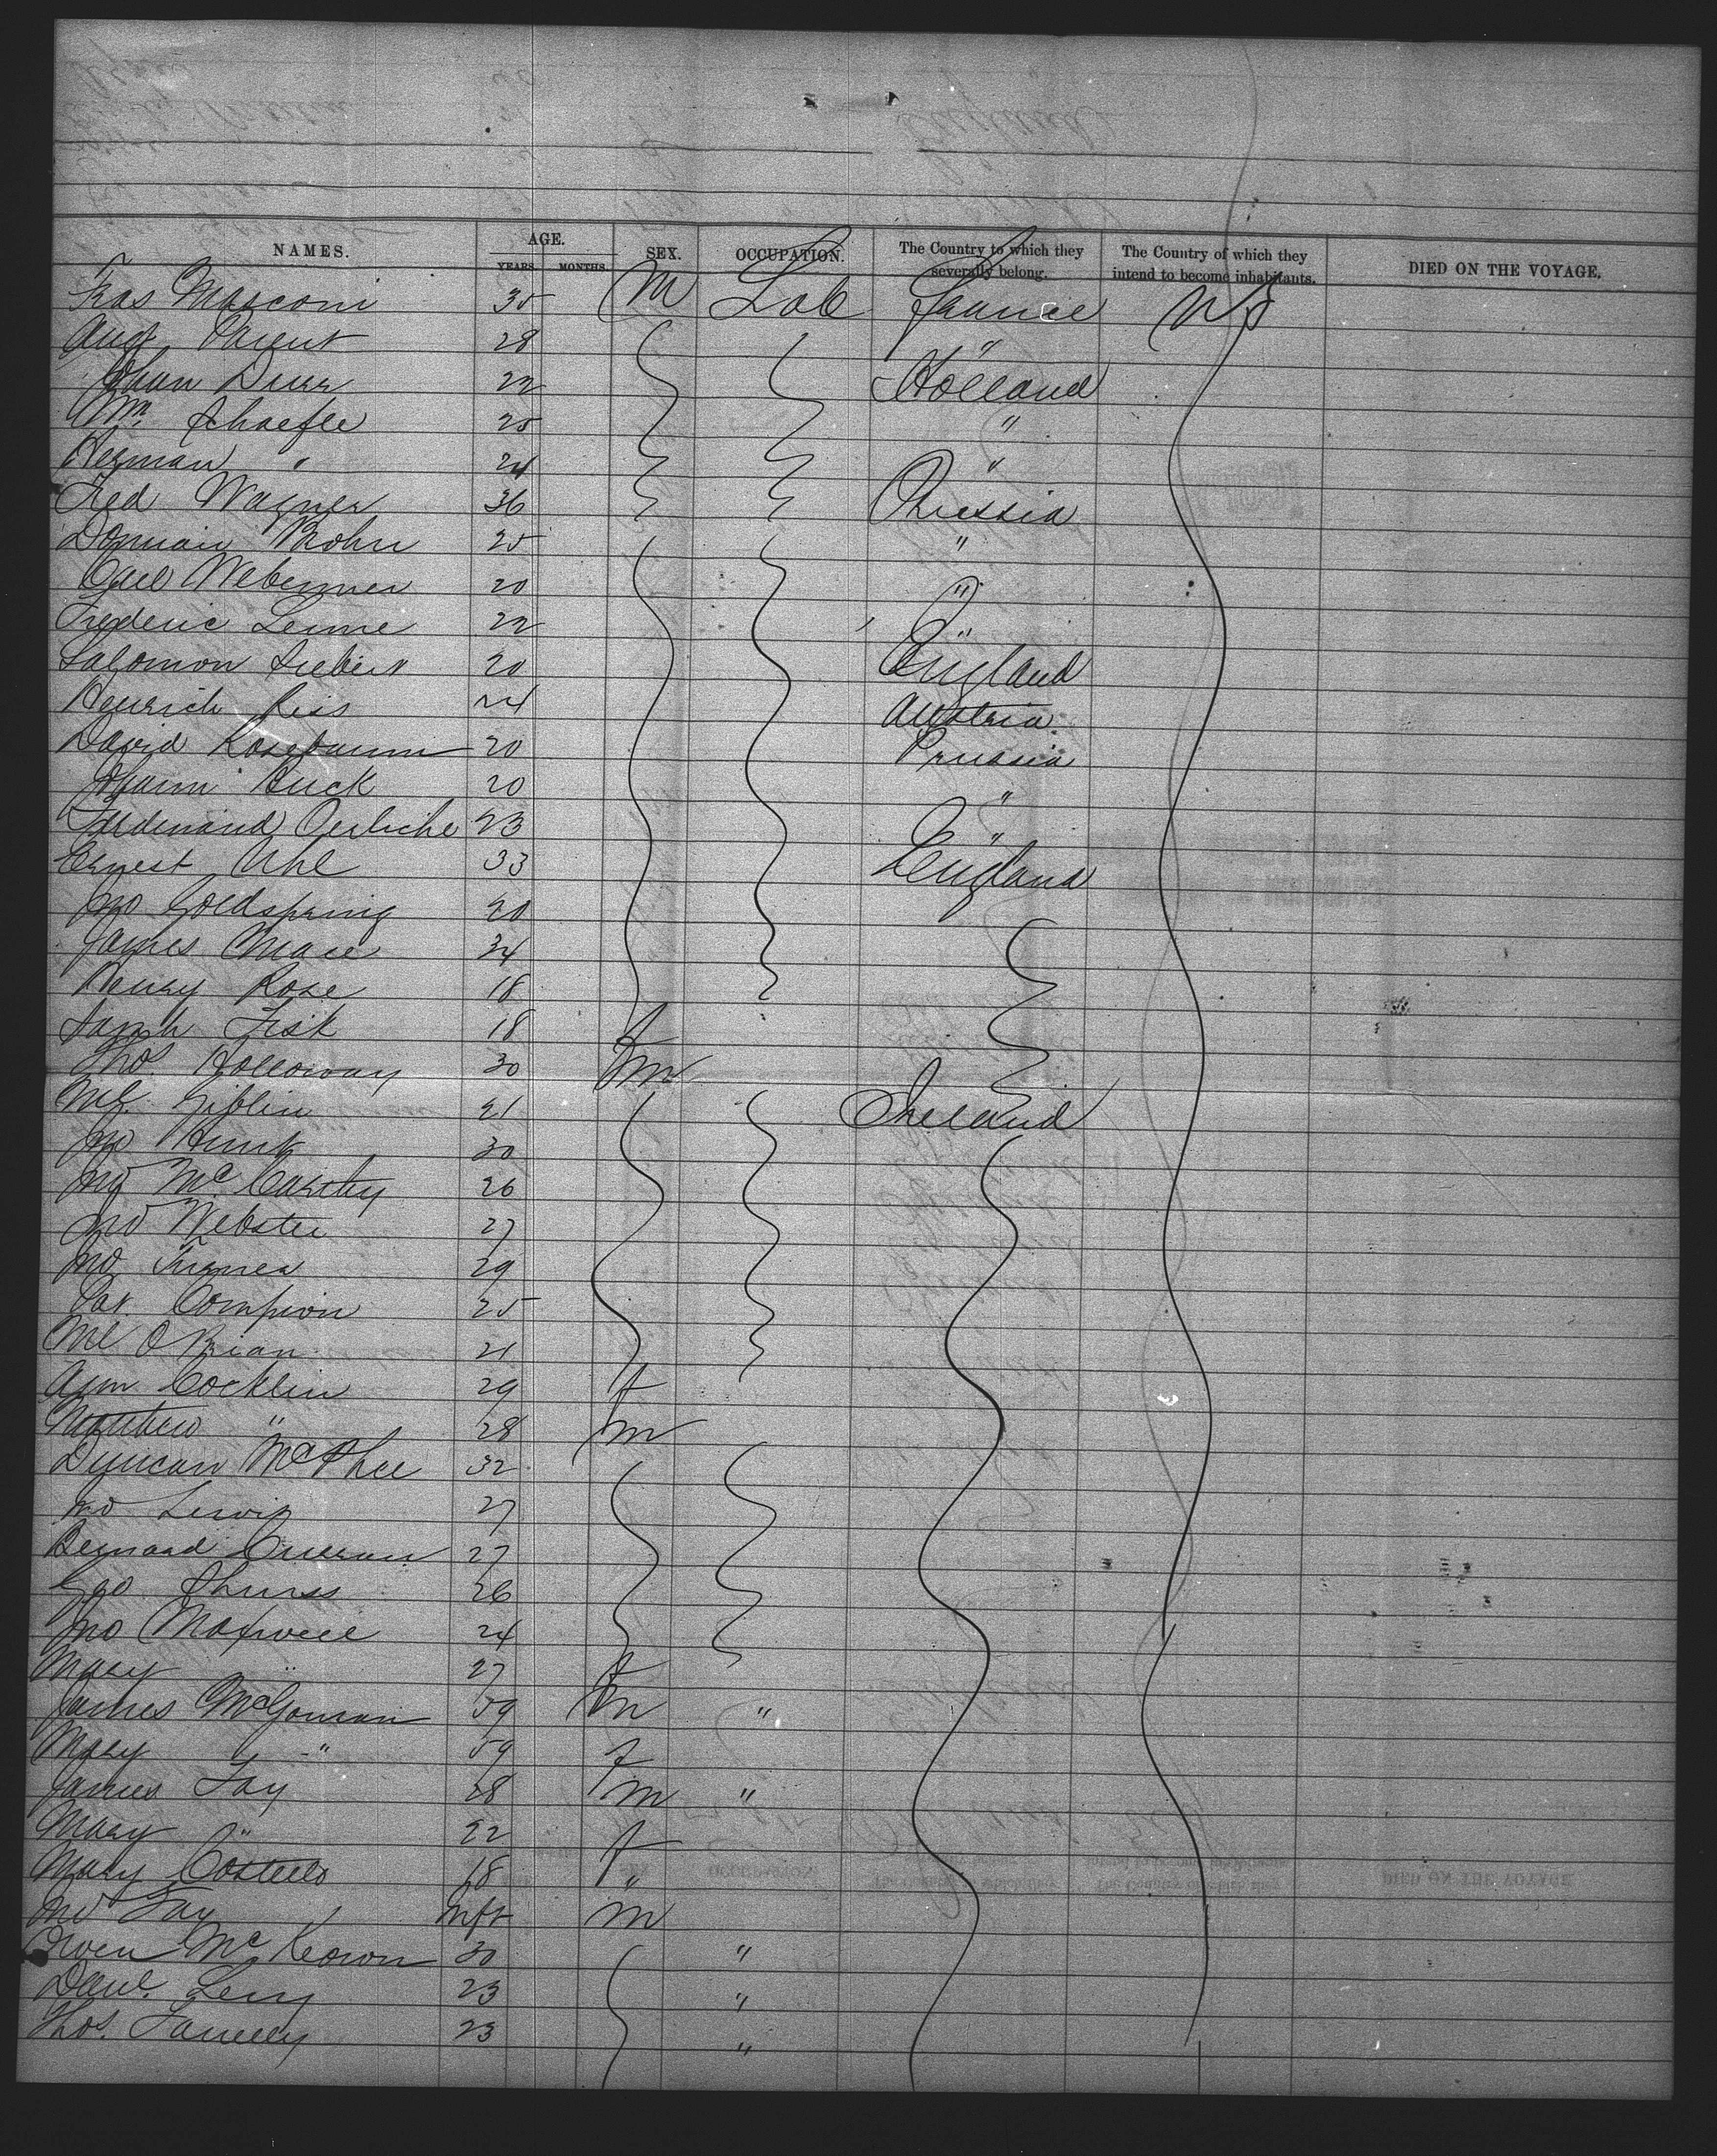 NAMES. AGE. SEX. OCCUPATION. The Country to which they severally belong. The Country of which they intend to become inhabitants. DIED ON THE VOYAGE.
YEARS. MONTHS.
Fras Masconi 35 M Lab France US
Aug Parent 28 "
Johan Durr 22 Holland
Wm. Schaefle 25 "
Herman " 24 "
Fred Wagner 36 Prussia
25 "
Carl 20 "
Frederic 22 "
Salomon Siebert 20 England
Henrich Reis 24 Austria
David Rosebaum 20 Prussia
Johann Huck 20 "
Ferdinand 23 "
Ernest Uhl 33 England
Jno Goldspring 20
James Mace 34
Henry Rose 18
Sarah Fisk 18 f
Thos Holloway 30 m
Ml. Giblin 21 Ireland
Jno Hunt 30
Jno McCarthy 26
Jno Webster 27
Jno Turner 29
Pat. Compion 25
Ml O'Brian 21
Ann Cocklin 29 f
Matthew " 28 m
Duncan McPhee 32
Jno Lewis 27
Bernard Curran 27
Geo 26
Jno Maxwell 24
Mary " 27 f
James McGowan 59 m "
Mary " 59 f
James Fay 28 m "
Mary " 22 f
Mary Costello 18 "
Jno Fay Inft m
Owen McKeown 30 "
Danl. Levy 23 "
Thos. 23 "